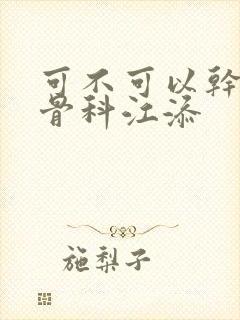 可不可以幹
骨科江添
施梨子